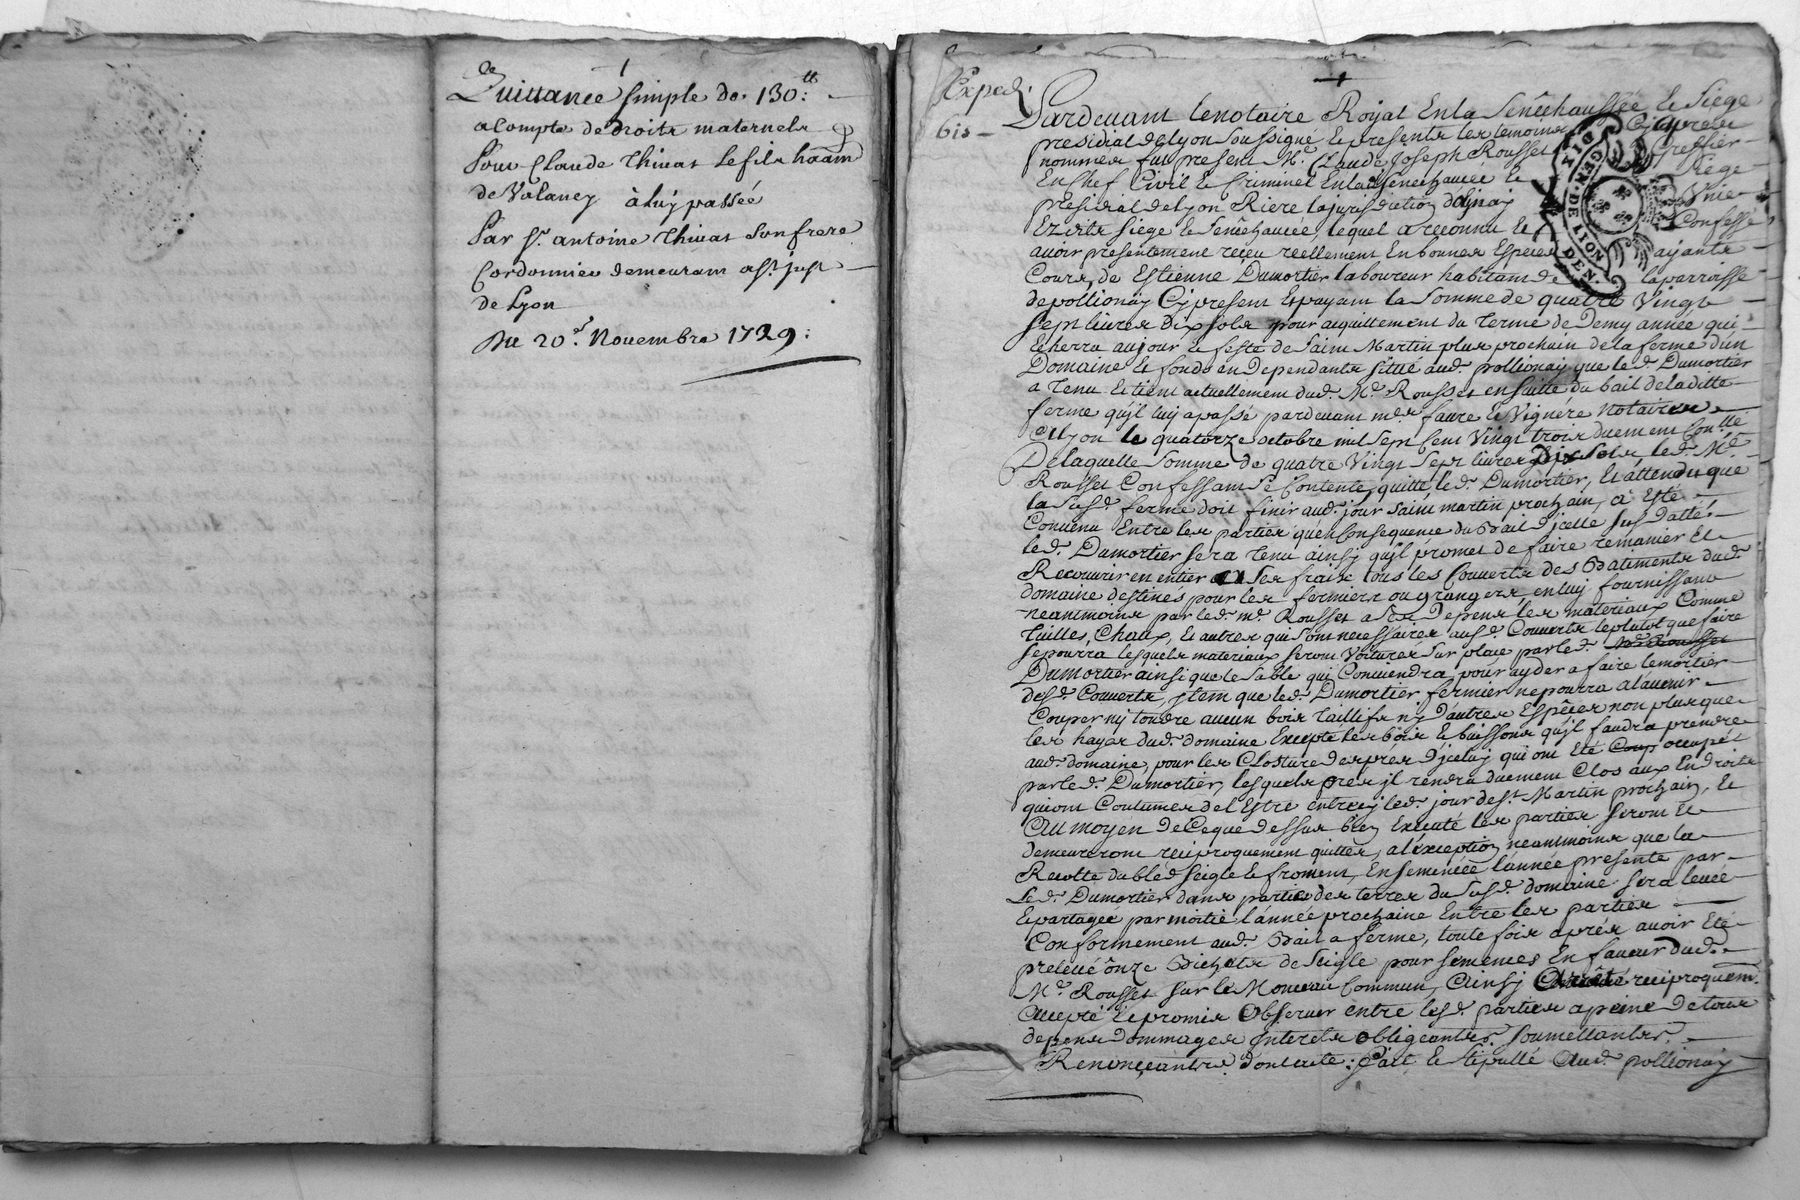 Quittance simple de 130.tt
a Compte de droits maternels
Pour Claude Thivas Le fils ham
de Valancy à luy passée
Par Sr. antoine Thivas Son frere
Cordonnier demeurant a St. just
de Lyon
Du 20e. Novembre 1729:
Exped.
Pardevant le notaire Royal En la Senêchaussée Le Siege
presidial de Lyon Soussigné Le presents Les temoins Cy apres
nommes fut present Me. Claude Joseph Rousset Greffier
En Chef Civil Le Criminel En la Senechaucee Le Siege
presidial de Lyon Riere la jurisdiction d'ajnaj
Ezdits Siege Le Senêchaucee, lequel a reconnu Le Confesse
avoir presentement reçeu reellement En bonnes Especes ayants
Cours, de Estienne Dumortier laboureur habitant de la parroisse
de pollionaj Cy present Le payant la Somme de quatre Vingt
Sept Livres Dix Sols pour aquittement du terme de Demy année qui
Echerra au jour Le feste de Saint Martin plus prochain de la ferme d'un
Domaine Le fonds en Dependants Situé aud. pollionaj que le d. Dumortier
a tenu Le tient actuellement dud. Me. Rousset en Suitte du bail de laditte
ferme qu'jl luy a passé pardevant mes. faure Le Vignére Notaires
a Lyon le quatorze octobre mil Sept Cent Vingt trois duement Contté
De laquelle Somme de quatre Vingt Sept livres Dix Sols, le d. Me.
Rousset Confessant Se Contente, quitte le d. Dumortier, Et attendu que
la Susd. ferme doit finir aud. jour Saint martin prochain, a Esté
Convenu Entre les parties qu'en Consequence du Bail d'jcelle Sus datté
le d. Dumortier Sera tenu ainsj qu'jl promet de faire remanier Et
Recouvrir en entier a Ses fraix tous les Couverts des Batiments dud.
domaine destinés pour les fermiers ou grangers, en luy fournissant
neantmoins par le d. me. Rousset a Ses Depens les materiaux Comme
tuilles, Chaux, Et autres qui Sont necessaires aus d. Couverts le plutot que faire
Se pourra lesquels materiaux Seront Voitures Sur place par le d. Me. Rousset
Dumortier ainsi que le Sable qui Conviendra pour ayder a faire le mortier
des d. Couverts, jtem que le d. Dumortier fermier ne pourra a l'avenir
Couper nj tondre aucun bois taillifs nj D'autres Espêces non plus que
les hayes dud. domaine Excepté les bois Le buissons qu'jl faudra prendre
aud. domaine, pour les Closture des prés D'jceluj qui ont Eté Coup occupés
par le d. Dumortier, lesquels pres jl rendra duement Clos aux Endroits
qui ont Coutumes de l'Estre entre cy le d. jour de St. Martin prochain, Le
Au moyen de Ce que dessus bien Executé les parties Seront Le
demeureront réciproquement quittes, a l'exception neantmoins que la
Recolte du bled Seigle Le froment, Ensemencée l'année presente par
Le d. Dumortier dans partie des terres du Susd. domaine Sera levée
Le partagée par moitié l'année prochaine Entre les parties
Conformement aud. Bail a ferme, toutefois aprés avoir Eté
prelevé ônze Bichets de Seigle pour Semences En faveur dud.
Me. Rousset Sur le Monceau Commun, Ainsj Arrêté reciproquem.
accepté Le promis Observer entre les d. parties a peine De tous
depens dommages Interets obligeants. Soumettants.
Renonçants. dont acte: fait Le Stipullé Aud. pollionaj
GEN. DE LYON